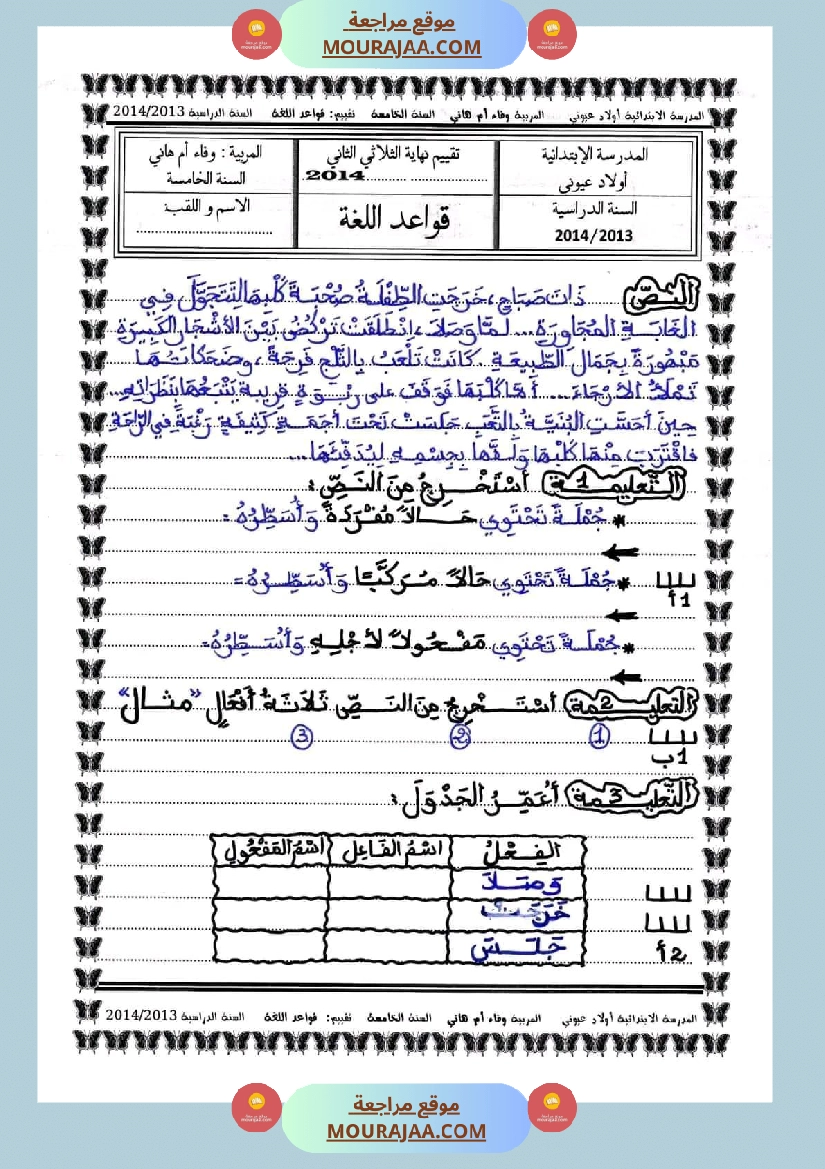 موقع مراجعة
MOURAJAA.COM
المدرسة الابتدائية أولاد عيوني المربية وفاء أم هاني السنة الخامسة تقييم: قواعد اللغة السنة الدراسية 2014/2013
المدرسة الإبتدائية
أولاد عيوني
السنة الدراسية
2014/2013
تقييم نهاية الثلاثي الثاني
2014
قواعد اللغة
المربية : وفاء أم هاني
السنة الخامسة
الاسم و اللقب:
النّصّ ذَاتَ صَبَاحٍ، خَرَجَت الطِّفْلَةُ صُحْبَةَ كَلْبِهَا لِتَتَجَوَّلَ فِي
الغَابَةِ المُجَاوِرَةِ... لمَّا وَصَلاَ، اِنْطَلَقَتْ تَرْكُضُ بَيْنَ الأَشْجَارِ الكَبِيرَةِ
مَبْهُورَةً بِجَمَالِ الطَّبِيعَةِ. كَانَتْ تَلْعَبُ بِالثَّلْجِ فَرِحَةً، وضَحَكَاتُهَا
تَمْلَأُ الأرْجَاءَ... أمّا كَلْبُهَا فَوَقَفَ على رَبْوَةٍ قريبة يَتْبَعُهَا بِنَظَرَاتِهِ...
حِينَ أحَسَّتِ البُنَيَّةُ بِالتَّعَبِ جَلَسَتْ تَحْتَ أجَمَةٍ كَثِيفَةٍ رَغْبَةً في الرّاحَةِ
فاقْتَرَبَ مِنْهَا كَلْبُهَا وَلَفَّهَا بِجِسْمِهِ لِيُدَفِّئَهَا...
التّعليمة 1 أَسْتَخْرِجُ مِنَ النَّصِّ :
* جُمْلَةً تَحْتَوِي حَالاً مُفْرَدَةً وَأُسَطِّرُهُ :
* جُمْلَةً تَحْتَوِي حَالاً مُرَكَّبًا وَأُسَطِّرُهُ =
1أ
* جُمْلَةً تَحْتَوِي مَفْعُولاً لأجْلِهِ وَأُسَطِّرُهُ.
التّعليمة 2 أَسْتَخْرِجُ مِنَ النَّصِّ ثَلَاثَةَ أَفْعَالٍ "مثال"
1 2 3
1ب
التّعليمة 3 أُعَمِّرُ الجَدْوَلَ :
الفِعْلُ اسْمُ الفَاعِلِ اسْمُ المَفْعُولِ
وَصَلاَ
خَرَجَتْ
جَلَسَ
2أ
المدرسة الابتدائية أولاد عيوني المربية وفاء أم هاني السنة الخامسة تقييم: قواعد اللغة السنة الدراسية 2014/2013
موقع مراجعة
MOURAJAA.COM